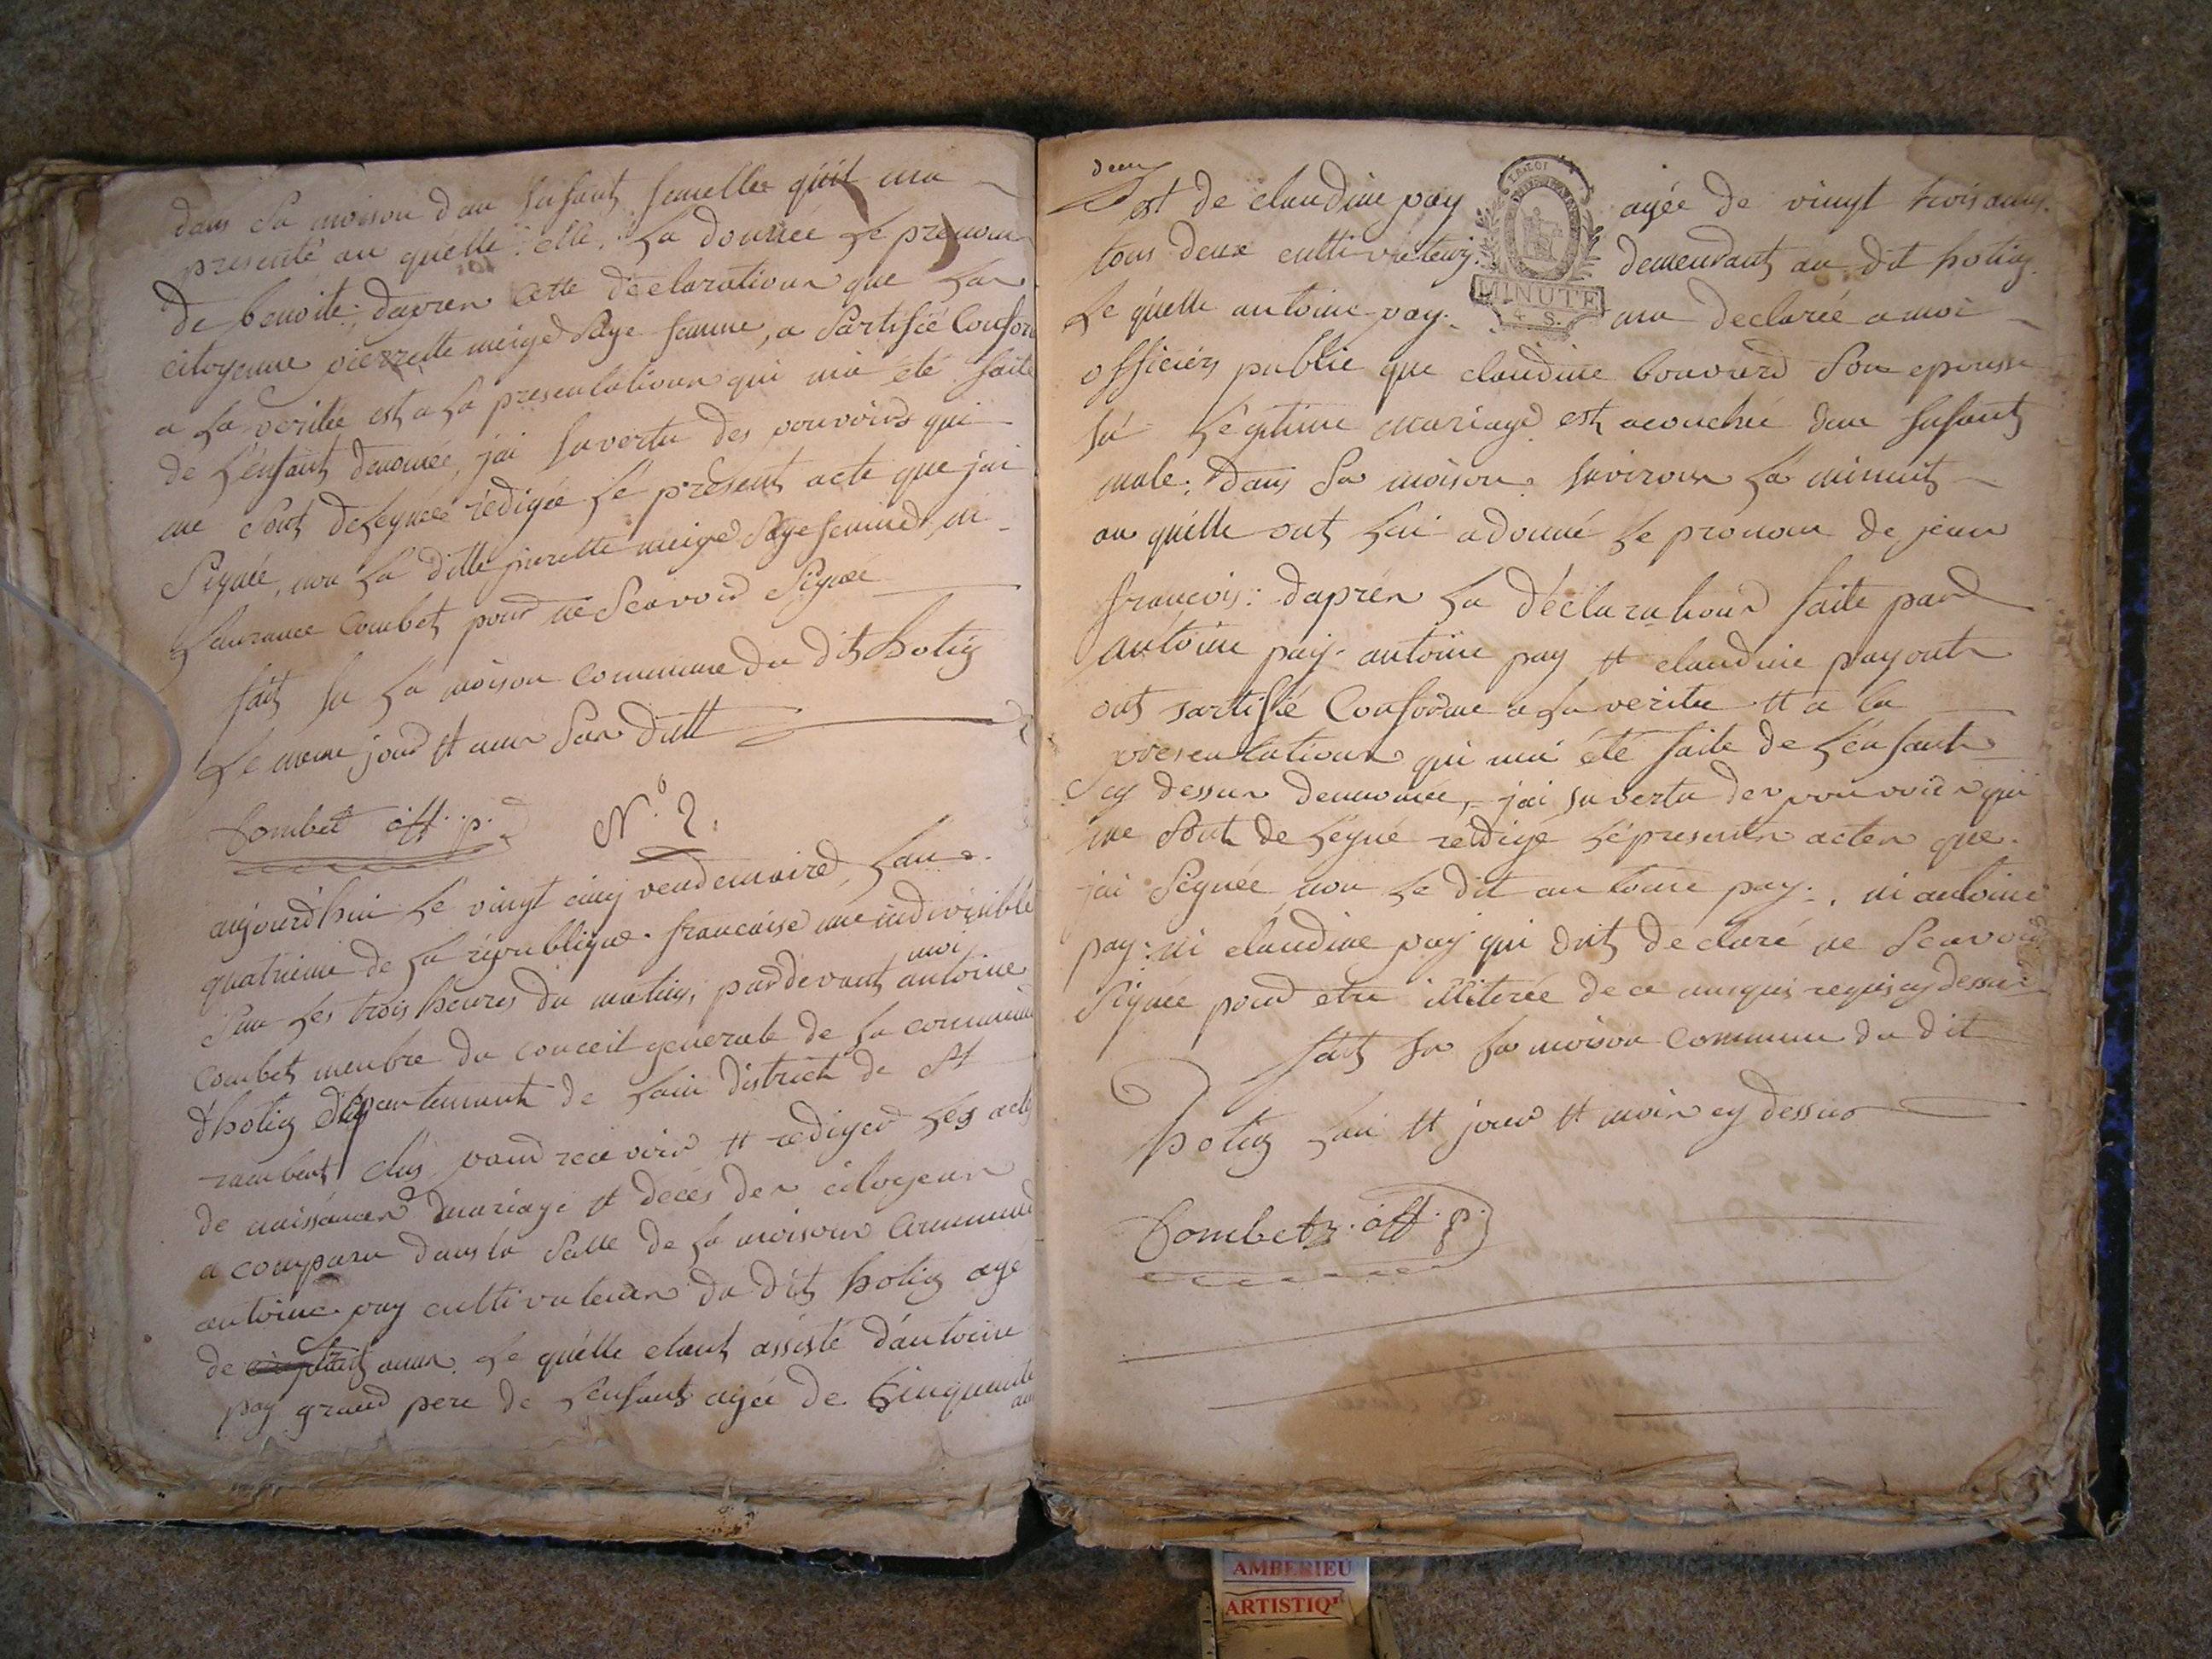 dans sa moison dun Enfant femelle quil ma
presenté au quélle elle. La donnée Le prenom
de benoite; dapren cette déclaration que La
citoyenne pierrette meige Sage femme, a Sartifié Confor
a La veritée est a La presentatiоn qui ma été faite
de Lénfant denomée, jai En vertu des pouvoirs qui
me sont deLeguée rédigée Lé présent acte que jai
Signée, non La ditte pierette meige Sage femme, ni
Laurance Combet pour ne Scavoir Signée
fait En La moison Commune du dit hotig
Le meme jour et aun Sus ditt
Combet off. p.
N.º 2.
aujourd'hui Lé vingt cinq vendemaire, Lan
quatrieme de La république francaise une indivisible
Sur Les trois heures du matin, pardevant moi antoine
Combet menbre du conceil generale de La commune
d'hotig département de Lain district de St
rambert, élus pour recevoir et rediger Les actes
de naissancen mariage et décés den citoyeun
a comparu dans la Salle de La moison Commune
antoine pay cultivateur du dit hotig age
de trent ans. Le quélle etant assisté dántoine
pay grand pere de Lenfant agée de Cinquante
deux
est de claudine pay agée de vingt trois ans.
LA LOI
MINUTE
4 S.
tous deux cultivateurs demeurant au dit hotig
Le quélle antoine pay. ma declarée a moi
officiérs public que claudine bouvard Son epouse
En Légitime mariage est acouchée dun Enfant
male; dans Sa moison Environ La minuit
au quélle ont Lui a donné Le pronom de jean
francois: daprén La déclaration faite par
antoine pay. antoine pay et claudine pay ont
ont sartifié Conforme a La verité et a La
presentation qui ma été faite de Lénfant
cy dessun denomée, jai En vertu den pouvoir qui
me Sont deLégué rédigé Lé presentn acten que
jai Signée non Le dit antoine pay., ni antoine
pay: ni claudine pay qui ont déclaré ne Scavoir
Signée pour etre illiterée de ce enquis requis cy dessu
fait En La moison Commune du dit
hotig Lan et jour et moin cy dessus
Combet. off. p.
AMBERIEU
ARTISTIQ